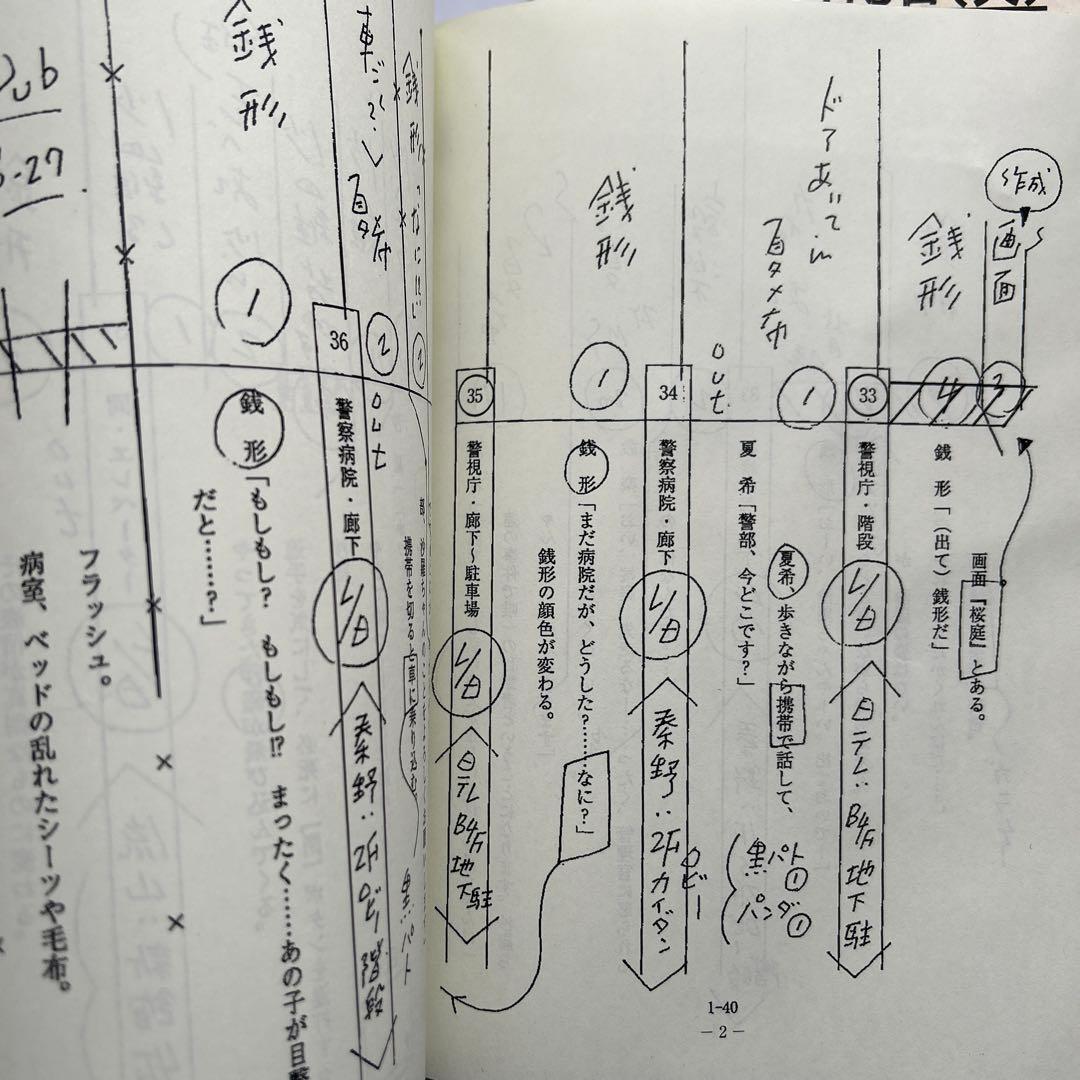 作成
画面
銘形
ドアあいてin
夏希
out
銭形
③
④
画面『桜庭』とある。
銭　形「(出て)銭形だ」
33
警視庁・階段
L/日
日テレ：B4F 地下駐
夏希、歩きながら携帯で話して、
夏　希「警部、今どこです？」
①
黒パト①
パンダ①
34
警察病院・廊下
L/日
秦野：2Fカイダン
ロビー
①
銭　形「まだ病院だが、どうした？……なに？」
銭形の顔色が変わる。
35
警視庁・廊下～駐車場
L/日
日テレ B4F 地下駐
1-40
— 2 —
銭形「なにぃ」
②
車ごくっ
夏希
②
out
携帯を切ると車に乗り込む
黒パト
36
警察病院・廊下
L/日
秦野：2Fロビー階段
銭形
①
銭　形「もしもし？　もしもし!?　まったく……あの子が目撃
だと……？」
フラッシュ。
病室、ベッドの乱れたシーツや毛布。